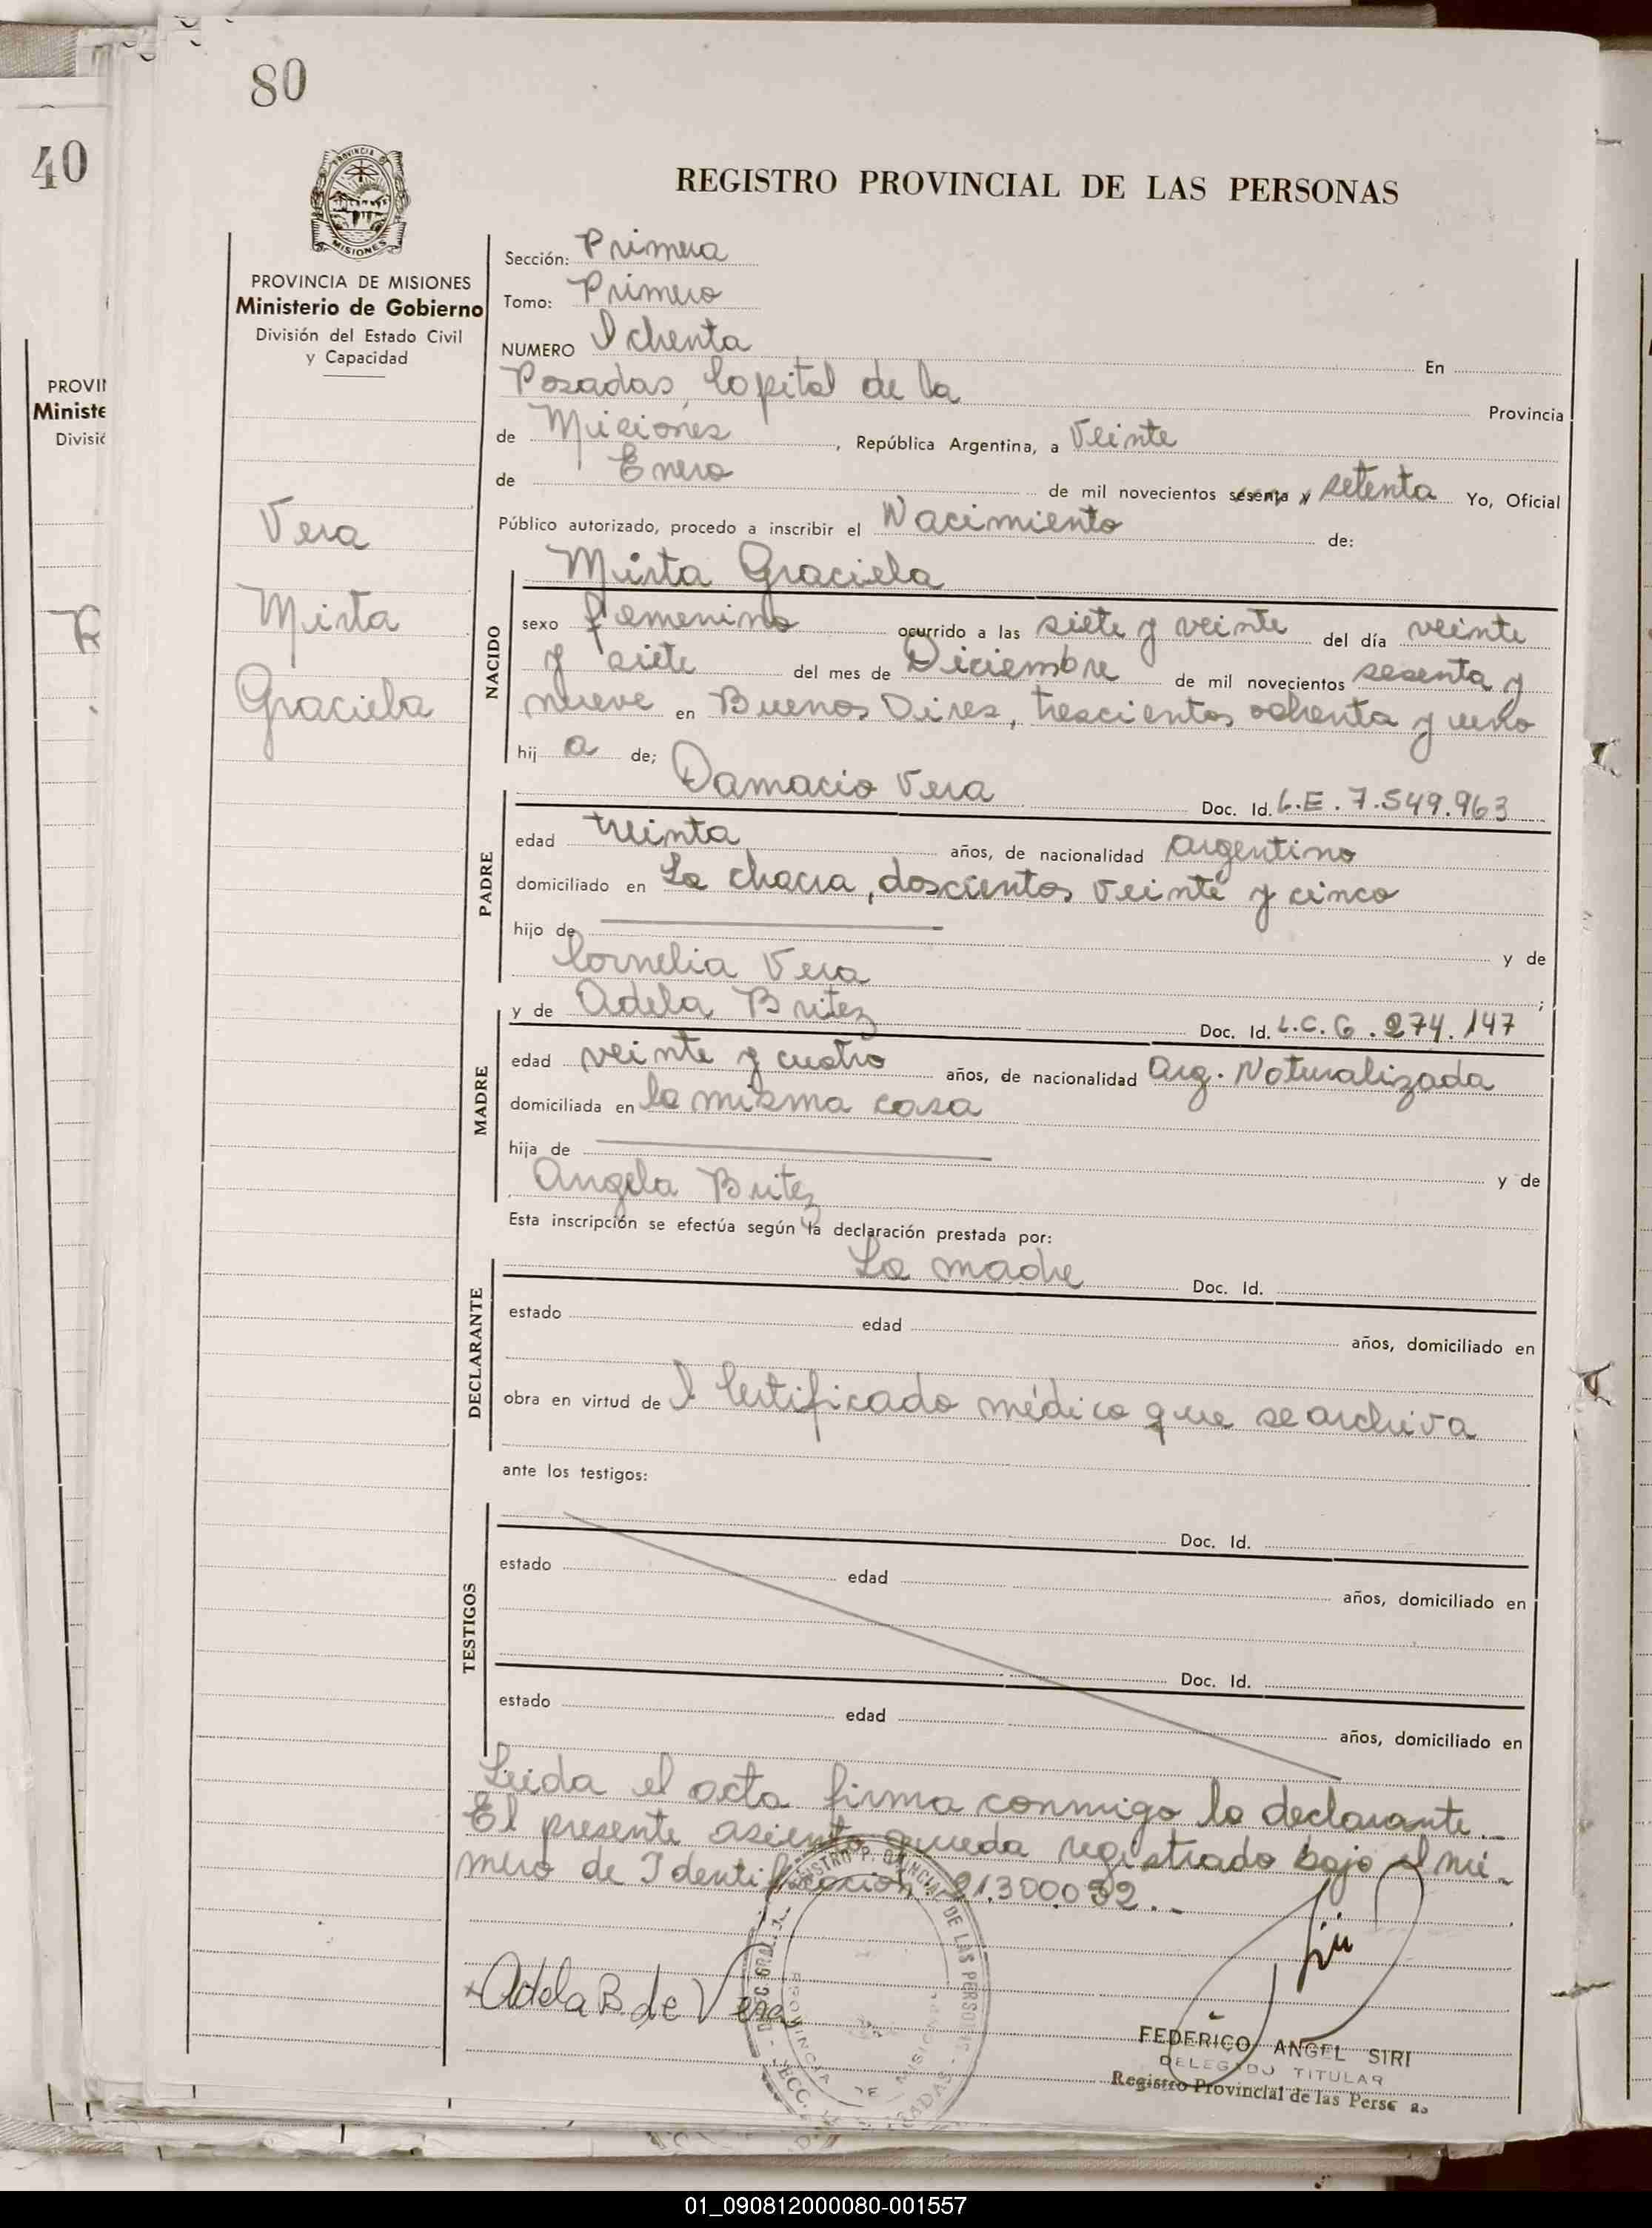 80
40
PROVINCIA DE MISIONES
REGISTRO PROVINCIAL DE LAS PERSONAS
PROVINCIA DE MISIONES
Ministerio de Gobierno
División del Estado Civil
y Capacidad
Vera
Mirta
Graciela
Sección: Primera
Tomo: Primero
NUMERO Ochenta En
Posadas, Capital de la Provincia
de Misiones, República Argentina, a Veinte
de Enero de mil novecientos sesenta y setenta Yo, Oficial
Público autorizado, procedo a inscribir el Nacimiento de:
Mirta Graciela
NACIDO
sexo femenino ocurrido a las siete y veinte del día veinte
y siete del mes de Diciembre de mil novecientos sesenta y
nueve en Buenos Aires, trescientos ochenta y uno
hij a de;
Damacio Vera Doc. Id. L.E. 7.549.963
PADRE
edad treinta años, de nacionalidad argentino
domiciliado en La chacra, doscientos veinte y cinco
hijo de y de
Cornelia Vera ;
y de Adela Britez Doc. Id. L.C. 6.274.147
MADRE
edad veinte y cuatro años, de nacionalidad Arg. Naturalizada
domiciliada en la misma casa
hija de y de
Angela Britez
Esta inscripción se efectúa según la declaración prestada por:
La madre Doc. Id.
DECLARANTE
estado edad años, domiciliado en
obra en virtud de l Certificado médico que se archiva
ante los testigos:
TESTIGOS
Doc. Id.
estado edad años, domiciliado en
Doc. Id.
estado edad años, domiciliado en
Leida el acta firma conmigo la declarante.-
El presente asiento queda registrado bajo el nú-
mero de Identificación 21.300.032.-
Adela B. de Vera
FEDERICO ANGEL SIRI
DELEGADO TITULAR
Registro Provincial de las Perso as
PROVI
Ministe
Divisió
01_090812000080-001557